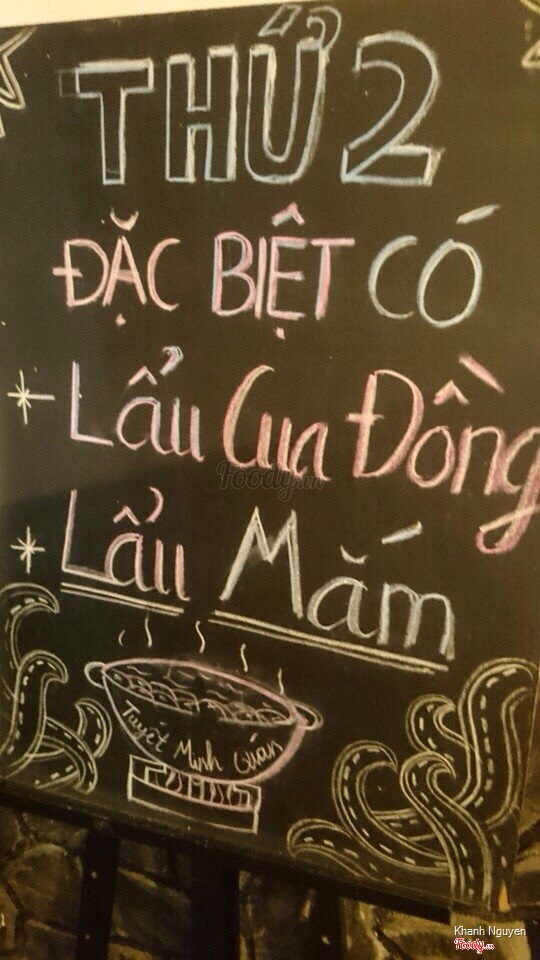 THỨ 2
ĐẶC BIỆT CÓ
Lẩu Cua Đồng
Foody.vn
Lẩu Mắm
Tuyết Minh Quán
Khanh Nguyen
Foody.vn